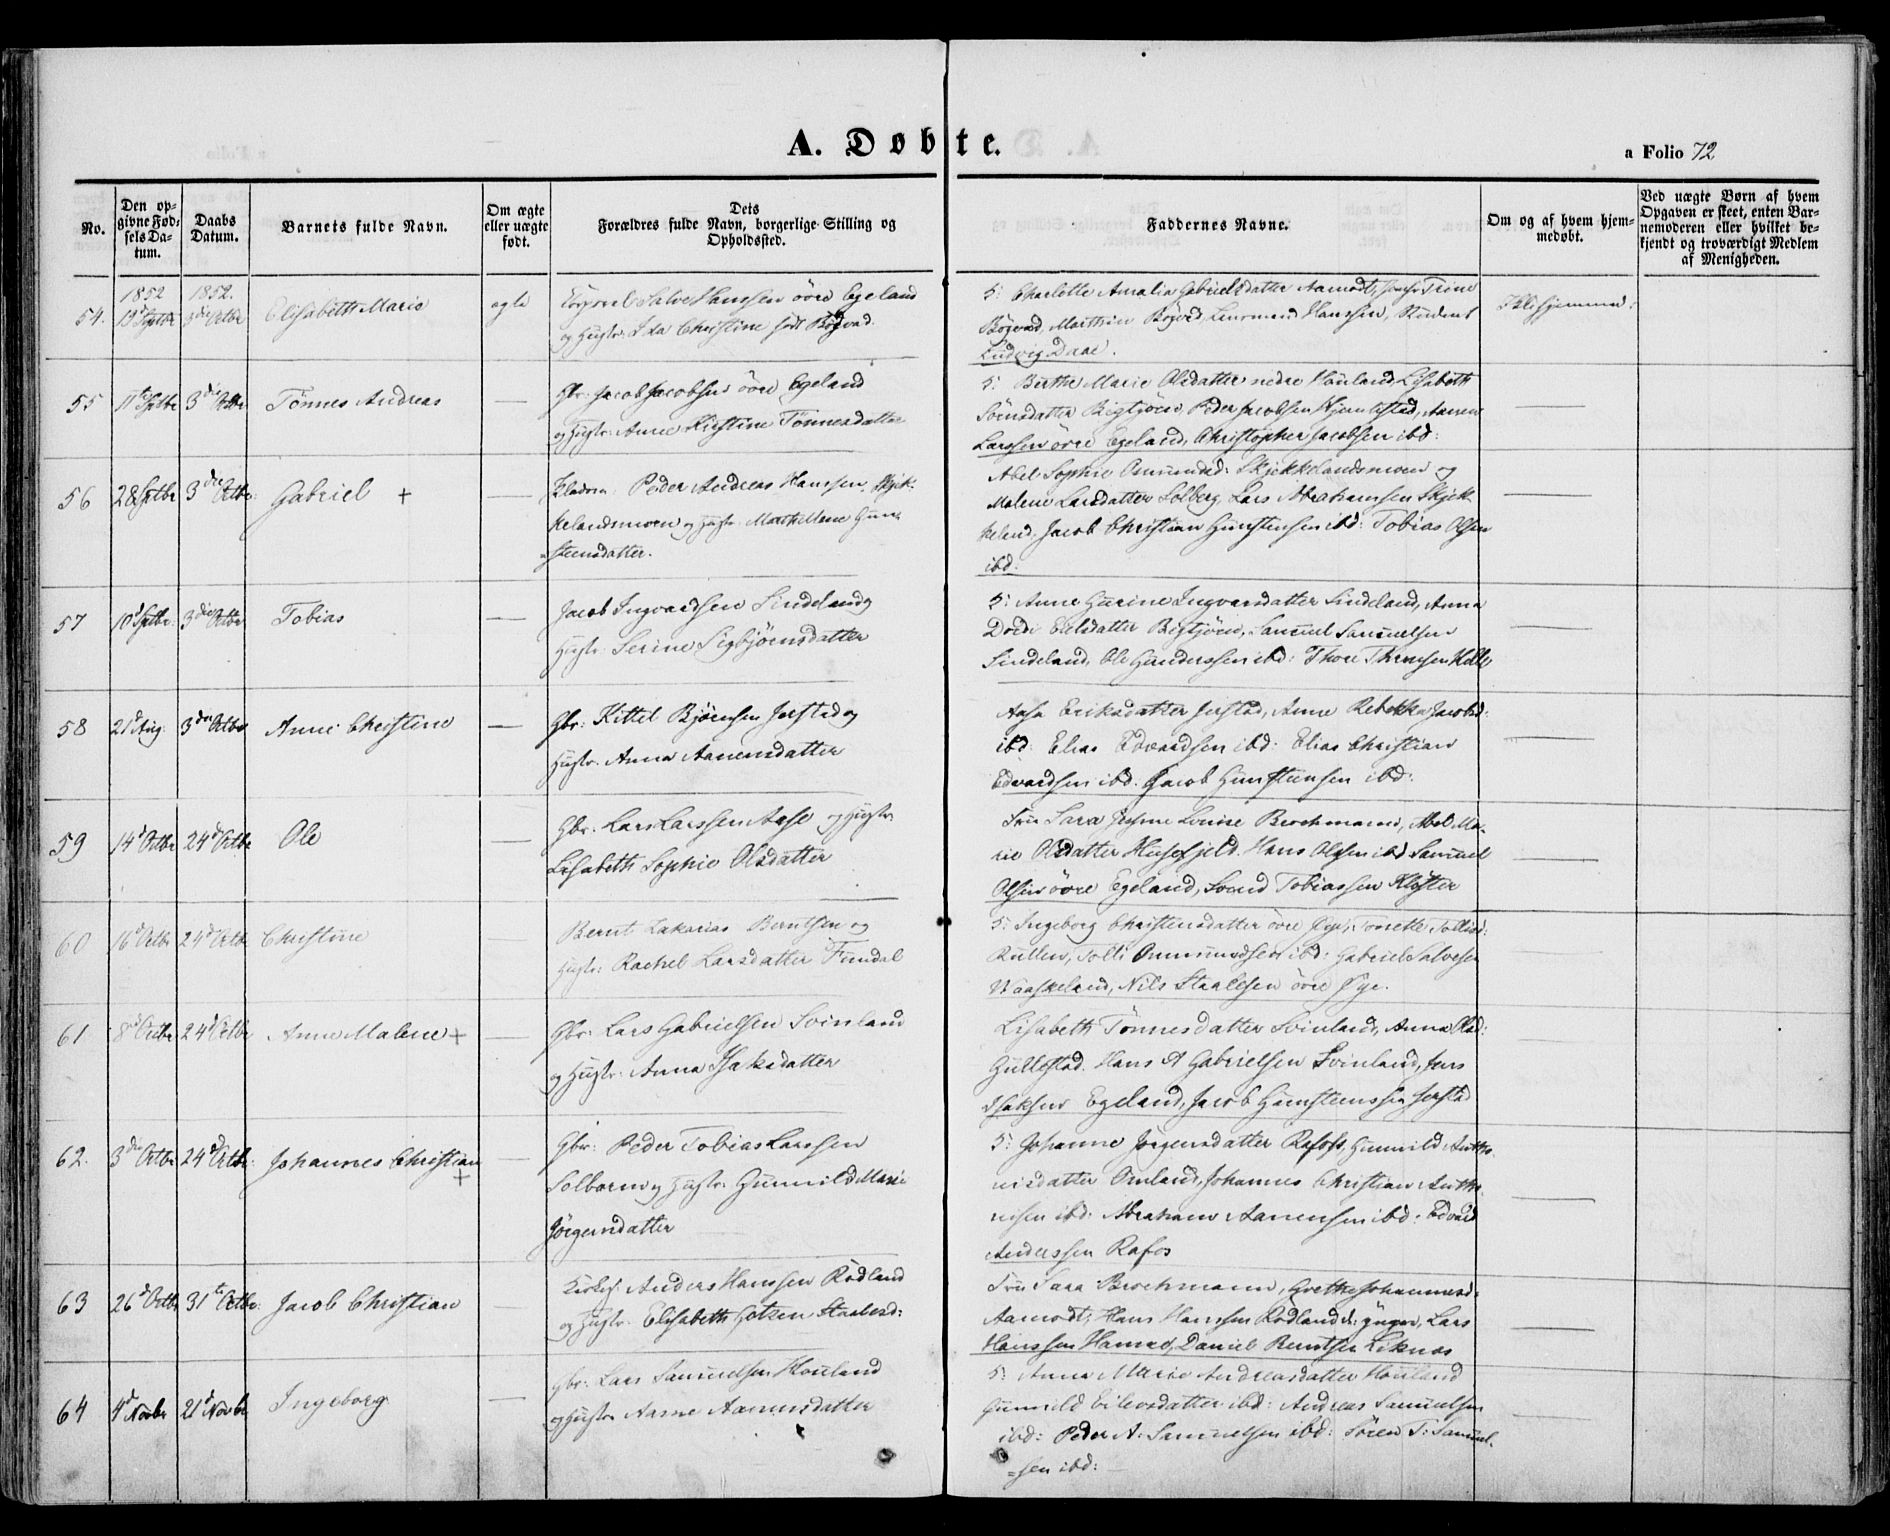 A. Døbte.
a Folio 72
No.
Den opgivne Fødsels Datum.
Daabs Datum.
Barnets fulde Navn.
Om ægte eller uægte født.
Dets Forældres fulde Navn, borgerlige Stilling og Opholdssted.
Faddernes Navne.
Om og af hvem hjemmedøbt.
Ved uægte Børn af hvem Opgaven er skeet, enten Barnemoderen eller hvilket bekjendt og troværdigt Medlem af Menigheden.
1852 1852.
54. 3die Octbr Elisabeth Marie ægte Salve Hanssen övre Egeland
og Hustr: Christine født Bögvad.
5: Charlotte Amalia Gabrielsdatter Aamodt, Trine
Bögvad, Bögvad, Lensmand Hanssen, Student
Ludvig Daae.
Ikke hjemmed:
55 11te Sptbr 3die Octbr Tönnes Andreas — Gbr: Jacob Jacobsen övre Egeland
og Hustr: Anne Kirstine Tönnesdatter
5: Berthe Marie Olsdatter nedre Houland, Lisabeth
Sörensdatter Bigtjörn, Peder Jacobsen, Aanen
Larssen övre Egeland, Christopher Jacobsen ibd:
—
56 28 Sptbr 3die Octbr: Gabriel + — Peder Andreas Hanssen, Skjek-
kelandsmoen og Hustr: Marthe Malene Gun-
=steensdatter.
Abel Sophie Omundsd: Skjekkelandsmoen og
Malene Larsdatter Solberg, Lars Abrahamsen Skjek-
keland, Jacob Christian Gunstensen ibd: Tobias Olsen
ibd:
—
57 10d Sptbr: 3die Octbr Tobias — Jacob Ingvardsen Sindeland og
Hustr: Serine Sigbjörnsdatter
5: Anne Gurine Ingvarsdatter Sindeland, Anna
Dordi Eilsdatter Bigtjörn, Samuel Samuelsen
Sindeland, Ole Gunderssen ibd: Thore
—
58 21d Aug: 3die Octbr Anne Christine — Gbr: Kittel Björnsen Jerstad og
Hustr: Anna Aanensdatter
Aasa Eriksdatter Jerstad, Anne Rebekka Jacobsd:
ibd: Elias Edvardsen ibd: Elias Christian
Edvardsen ibd: Jacob Gunstensen ibd:
—
59 14d Octbr 24d Octbr Ole — Gbr: Lars Larssen Aase og Hustr:
Lisabeth Sophie Olsdatter
Fru Sara Louise Brochmann, Abel Ma-
rie Olsdatter Husefjeld. Hans Olssen ibd Samuel
Olsen övre Egeland, Svend Tobiassen Kloster
—
60 16d Octbr 24d Octbr Christine — Bernt Zakarias Berntsen og
Hustr: Rachel Larsdatter Fundal
5: Ingeborg Christensdatter övre Øye, Tonette Tollisd:
Rullen, Tolli Ommundsen ibd: Gabriel Salvesen
Waaskeland, Nils Staalesen övre Øye.
—
61 8d Octbr 24d Octbr Anne Malene + — Gbr: Lars Gabrielsen Svinland
og Hustr: Anna Isaksdatter
Lisabeth Tönnesdatter Svinland, Anna Olsd:
Gullestad. Hans A Gabrielsen Svinland, Jens
Isaksen Egeland, Jacob Gunsteenssen Jerstad
62. 3die Octbr 24d Octbr: Johannes Christian + — Gbr: Peder Tobias Larssen
Solbern og Hustr: Gunnild Marie
Jörgensdatter
5: Johanne Jörgensdatter Rafoss, Gunnild Antho-
nisdatter Omland, Johannes Christian Antho-
nisen ibd: Abraham Aanensen ibd: Edvard
Anderssen Rafos
—
63 26d Octbr 31te Octbr: Jacob Christian — Kirkes: Anders Hanssen Rödland
og Hustr: Elisabeth Staalesd:
Fru Sara Brochmann, Grethe Johannesd:
Aamodt, Hans Hanssen Rödland d: yngre, Lars
Hanssen Hamre, Daniel Berntsen Liknæs
—
64 4d Novbr 21d Novbr Ingeborg — Gbr: Lars Samuelsen Houland
og Hustr: Aasne Aanensdatter
5: Anna Marie Andreasdatter Houland
Gunnild Eilevsdatter ibd: Andreas Samuelsen
ibd: Peder A: Samuelsen ibd: Sören T: Samuel-
=sen ibd:
—